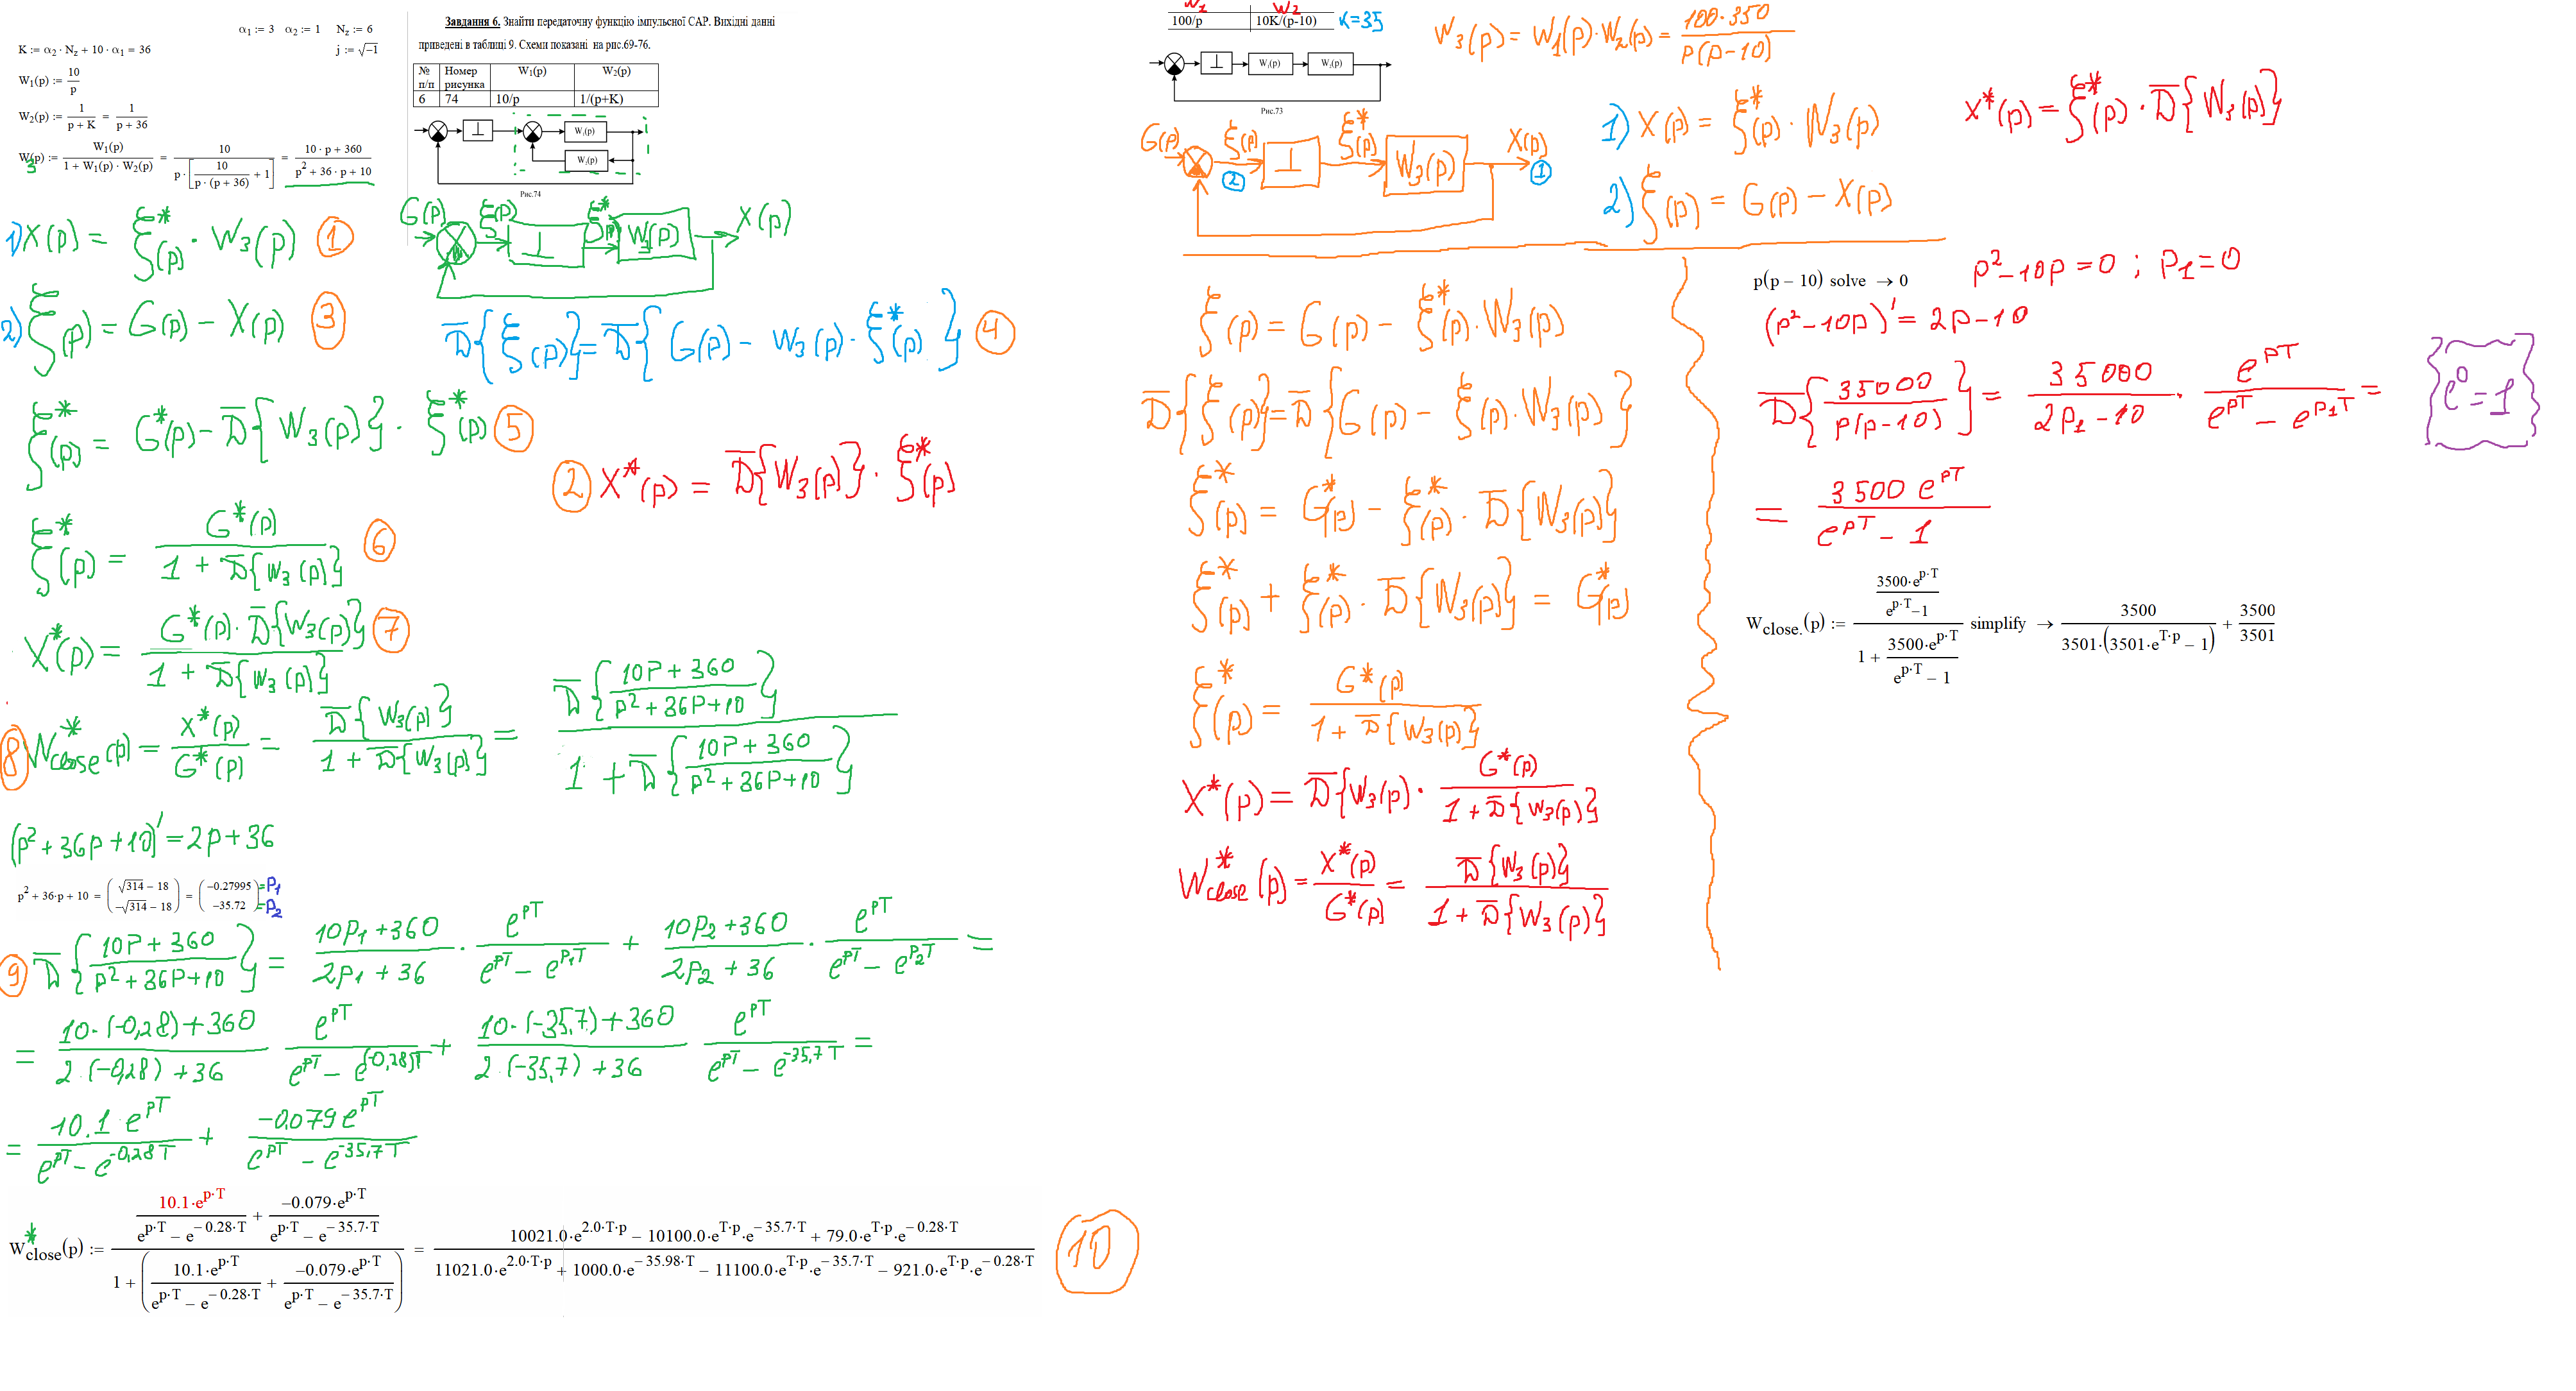 α₁ := 3 α₂ := 1 N_z := 6
K := α₂ · N_z + 10 · α₁ = 36 j := √-1
W₁(p) := 10/p
W₂(p) := 1/(p + K) = 1/(p + 36)
W₃(p) := W₁(p)/(1 + W₁(p) · W₂(p)) = 10/(p · [10/(p · (p + 36)) + 1]) = (10 · p + 360)/(p² + 36 · p + 10)
Завдання 6. Знайти передаточну функцію імпульсної САР. Вихідні данні
приведені в таблиці 9. Схеми показані на рис.69-76.
№ п/п Номер рисунка W₁(p) W₂(p)
6 74 10/p 1/(p+K)
W₁(p)
W₂(p)
Рис.74
G(p) ξ(p) ⊥ ξ*(p) W₃(p) X(p)
1) X(p) = ξ*(p) · W₃(p) 1
2) ξ(p) = G(p) − X(p) 3
D̄{ξ(p)} = D̄{G(p) − W₃(p) · ξ*(p)} 4
ξ*(p) = G*(p) − D̄{W₃(p)} · ξ*(p) 5
2 X*(p) = D̄{W₃(p)} · ξ*(p)
ξ*(p) = G*(p)/(1 + D̄{W₃(p)}) 6
X*(p) = G*(p) · D̄{W₃(p)}/(1 + D̄{W₃(p)}) 7
8 W*close(p) = X*(p)/G*(p) = D̄{W₃(p)}/(1 + D̄{W₃(p)}) = D̄{(10p + 360)/(p² + 36p + 10)}/(1 + D̄{(10p + 360)/(p² + 36p + 10)})
(p² + 36p + 10)' = 2p + 36
p² + 36·p + 10 = (√314 − 18; −√314 − 18) = (−0.27995; −35.72) =P₁ =P₂
9 D̄{(10p + 360)/(p² + 36p + 10)} = (10p₁ + 360)/(2p₁ + 36) · e^pT/(e^pT − e^p₁T) + (10p₂ + 360)/(2p₂ + 36) · e^pT/(e^pT − e^p₂T) =
= (10·(−0,28) + 360)/(2·(−0,28) + 36) e^pT/(e^pT − e^(−0,28)T) + (10·(−35,7) + 360)/(2·(−35,7) + 36) e^pT/(e^pT − e^−35,7T) =
= 10.1 e^pT/(e^pT − e^−0,28T) + −0.079 e^pT/(e^pT − e^−35,7T)
W*close(p) := (10.1·e^p·T/(e^p·T − e^−0.28·T) + −0.079·e^p·T/(e^p·T − e^−35.7·T))/(1 + (10.1·e^p·T/(e^p·T − e^−0.28·T) + −0.079·e^p·T/(e^p·T − e^−35.7·T))) = (10021.0·e^2.0·T·p − 10100.0·e^T·p·e^−35.7·T + 79.0·e^T·p·e^−0.28·T)/(11021.0·e^2.0·T·p + 1000.0·e^−35.98·T − 11100.0·e^T·p·e^−35.7·T − 921.0·e^T·p·e^−0.28·T) 10
W₁ W₂
100/p 10K/(p-10) K=35
W₁(p) W₂(p)
Рис.73
W₃(p) = W₁(p)·W₂(p) = 100·350/(p(p−10))
G(p) ξ(p) ⊥ ξ*(p) W₃(p) X(p)
2 1
1) X(p) = ξ*(p) · W₃(p)
X*(p) = ξ*(p) · D̄{W₃(p)}
2) ξ(p) = G(p) − X(p)
ξ(p) = G(p) − ξ*(p)·W₃(p)
D̄{ξ(p)} = D̄{G(p) − ξ(p)·W₃(p)}
ξ*(p) = G*(p) − ξ*(p) · D̄{W₃(p)}
ξ*(p) + ξ*(p) · D̄{W₃(p)} = G*(p)
ξ*(p) = G*(p)/(1 + D̄{W₃(p)})
X*(p) = D̄{W₃(p)} · G*(p)/(1 + D̄{W₃(p)})
W*close(p) = X*(p)/G*(p) = D̄{W₃(p)}/(1 + D̄{W₃(p)})
p(p − 10) solve → 0 p² − 10p = 0 ; P₁ = 0
(p² − 10p)' = 2p − 10
D̄{35000/(p(p−10))} = 35000/(2p₁ − 10) · e^pT/(e^pT − e^p₁T) =
e⁰ = 1
= 3500 e^pT/(e^pT − 1)
Wclose.(p) := (3500·e^p·T/(e^p·T − 1))/(1 + 3500·e^p·T/(e^p·T − 1)) simplify → 3500/(3501·(3501·e^T·p − 1)) + 3500/3501